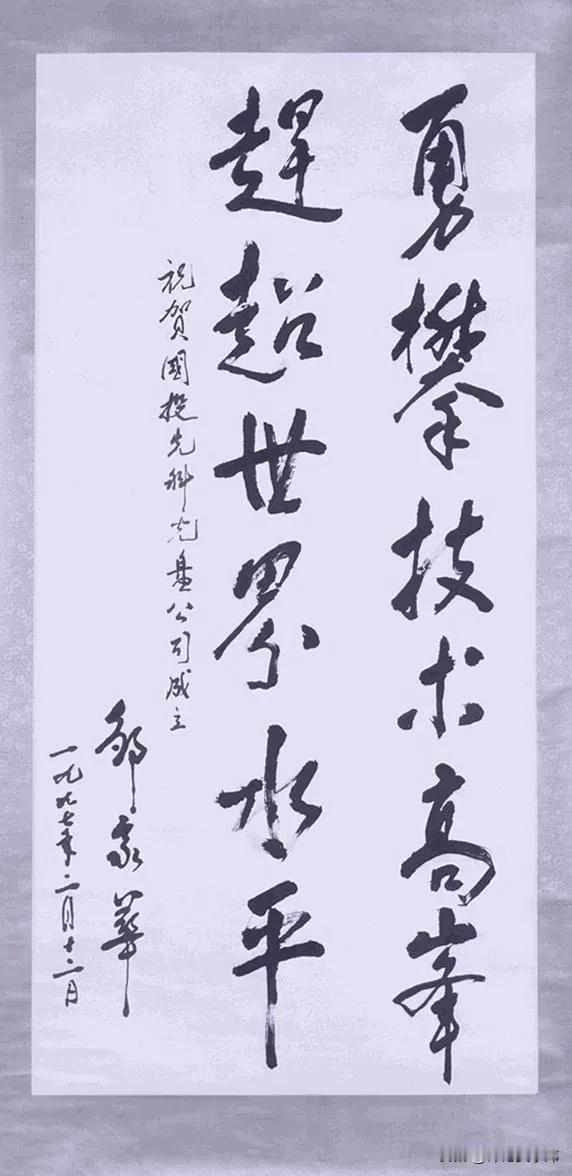 勇攀技术高峯
趕超世界水平
祝贺國投先科光盘公司成立
邹家华
一九九七年二月十二日